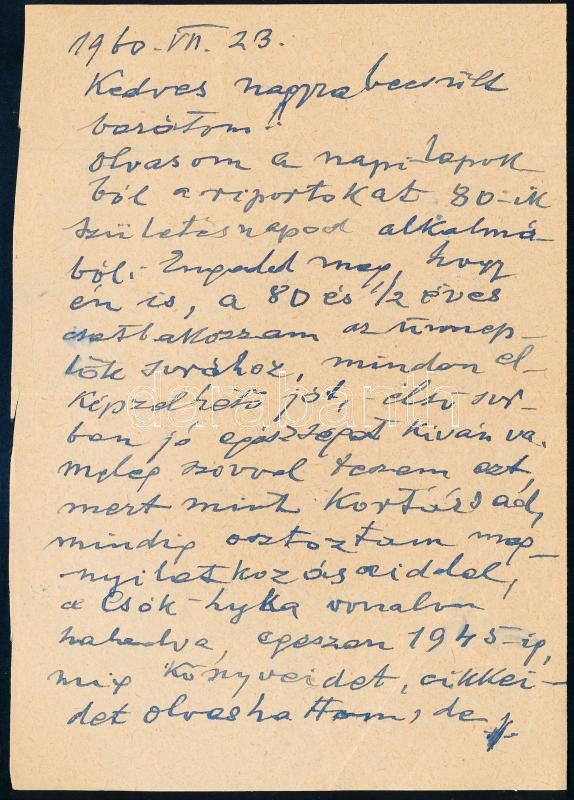 1960. VII. 23.
Kedves nagyrabecsült
barátom!
olvasom a napi-lapok
ból a riportokat 80-ik
születésnapod alkalmá-
ból. Engedd meg, hogy
én is, a 80 és 1/2 éves
csatlakozzam az ünnep-
lők sorához, minden el-
képzelhető jót, első sor-
ban jó egészséget kíván va.
meleg szívvel teszem ezt,
mert mint Kortársad,
mindig osztoztam meg-
nyilatkozásaiddal,
a Csók-hyka vonalon
haladva, egészen 1945-ig,
míg könyveidet, cikkei-
det olvashattam, de
darabanth